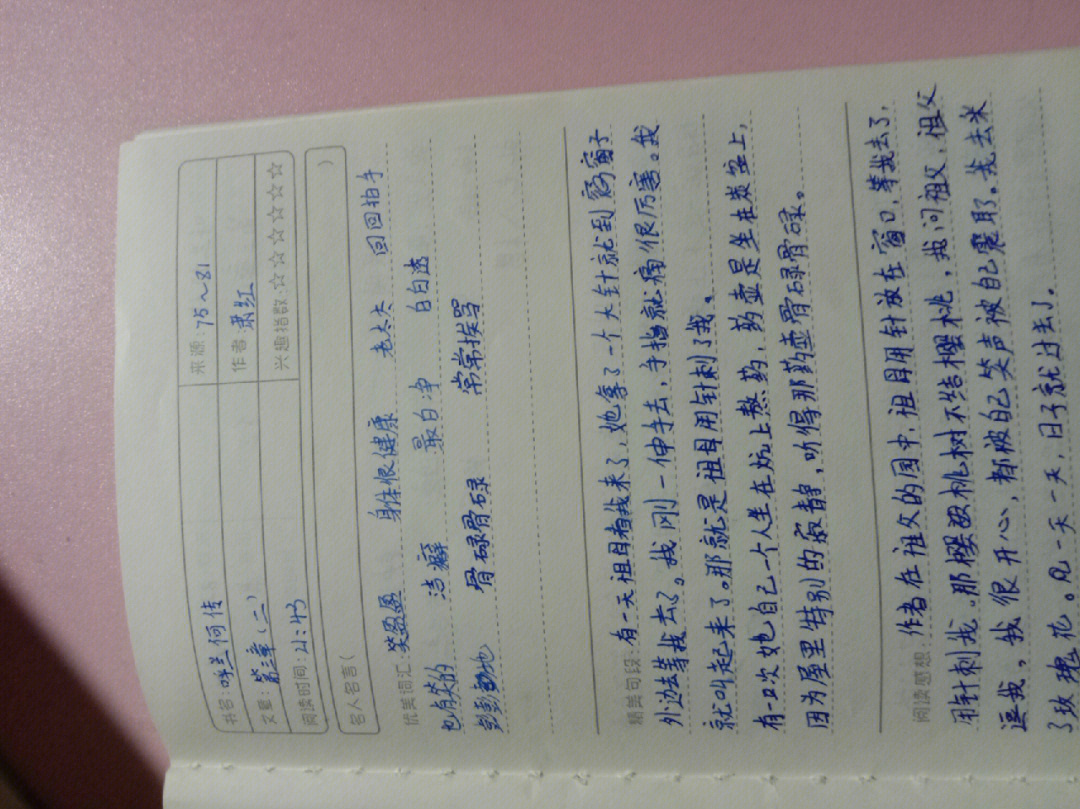 书名:呼兰河传 来源 75~81
文章:第三章(二) 作者 萧红
阅读时间:21:43 兴趣指数 ☆☆☆☆☆
名人名言( )
优美词汇:笑盈盈 身体很健康 老太太 回回拍手
也有笑的 洁癖 最白净 白白透
骨碌骨碌 常常挨骂
精美句段:有一天祖母看我来了,她拿了一个大针就到窗子
外边去等我去了。我刚一伸手去,手指就痛很厉害。我
就叫起来了。那就是祖母用针刺了我。
有一次她自己一个人坐在炕上熬药,药壶是坐在炭盆上,
因为屋里特别的寂静,听得那药壶骨碌骨碌。
阅读感想:作者在祖父的园中,祖母用针放在窗口,等我去了,
用针刺我。那樱桃树不结樱桃,我问祖父,祖父
逗我。我很开心,都被自己笑声被自己震耶。我去米
了玫瑰花。凡一天一天,日子就过去了。